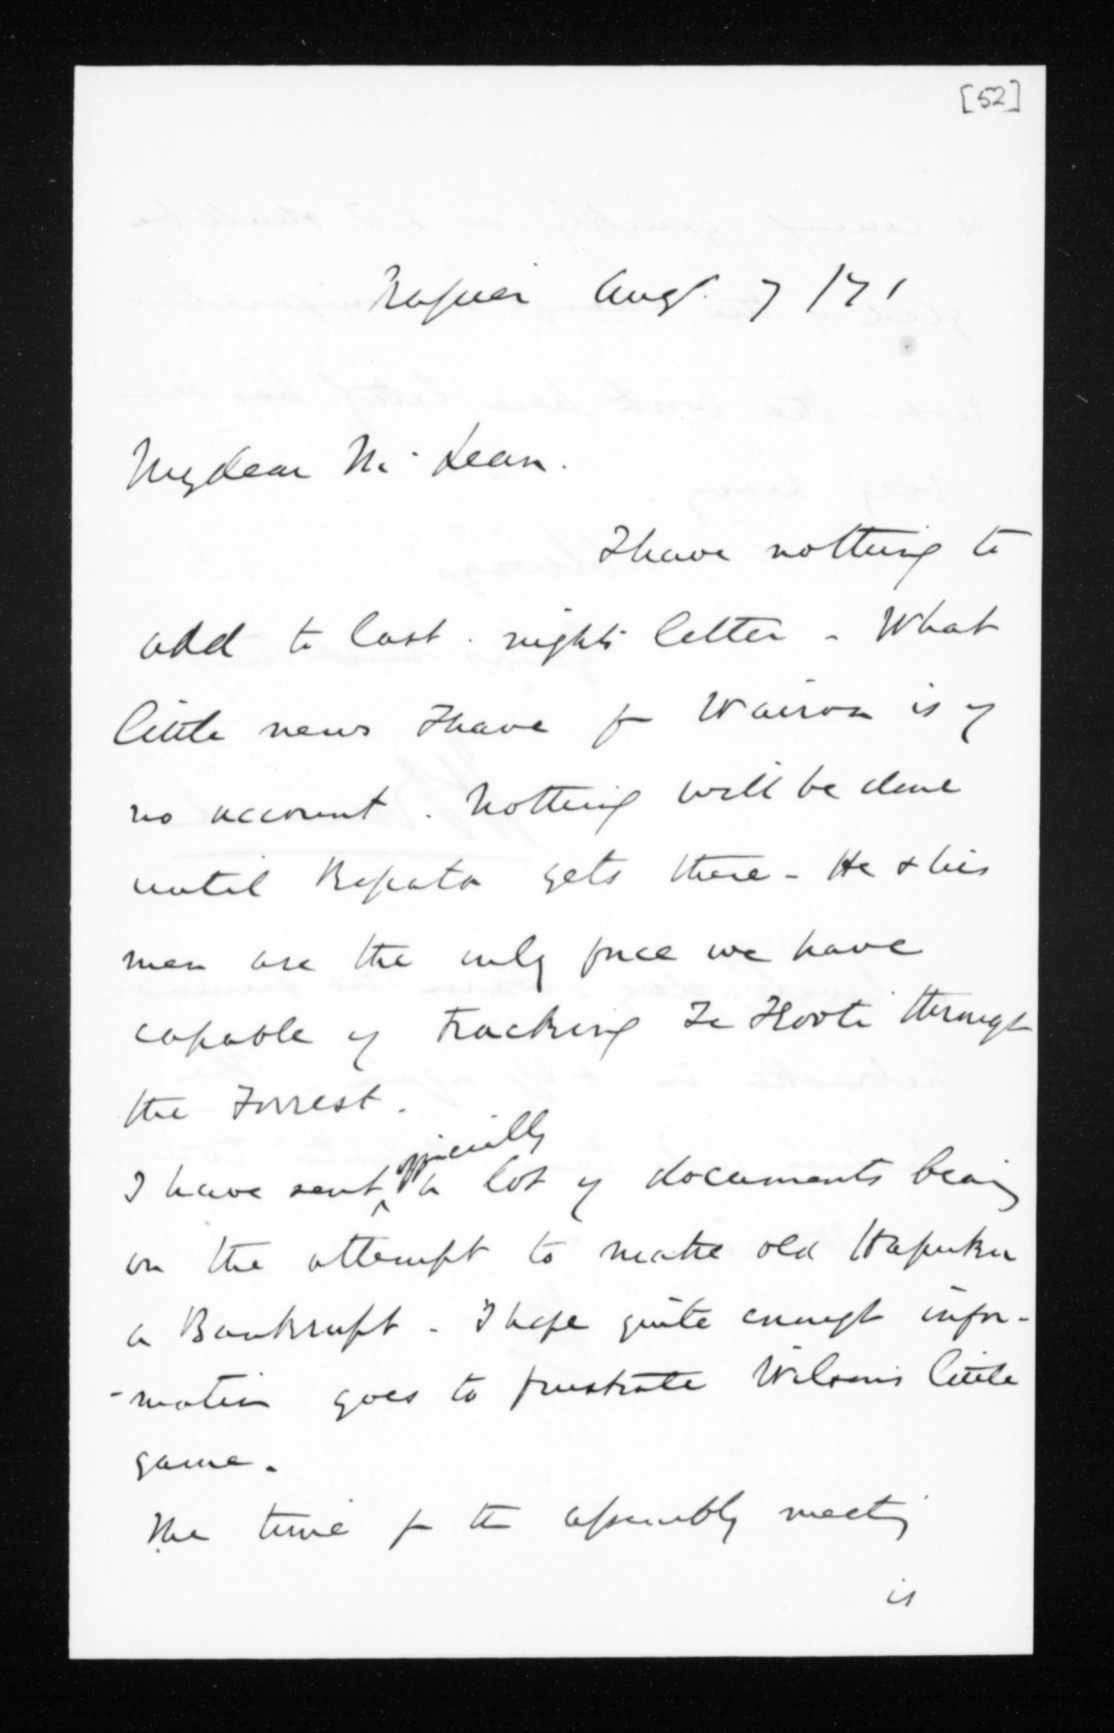 [52]
Napier Augt. 7 /71
My dear Mc Lean.
I have nothing to
add to last nights letter - What
little news I have fr Wairoa is of
no account. Nothing will be done
until Ropata gets there - He & his
men are the only force we have
capable of tracking Te Kooti through
the Forrest.
officially
I have sent ^ a lot of documents bearing
on the attempt to make old Hapuku
a Bankrupt - I hope quite enough infor-
-mation goes to frustrate Wilson's little
game.
The time fr the assembly meeting
is